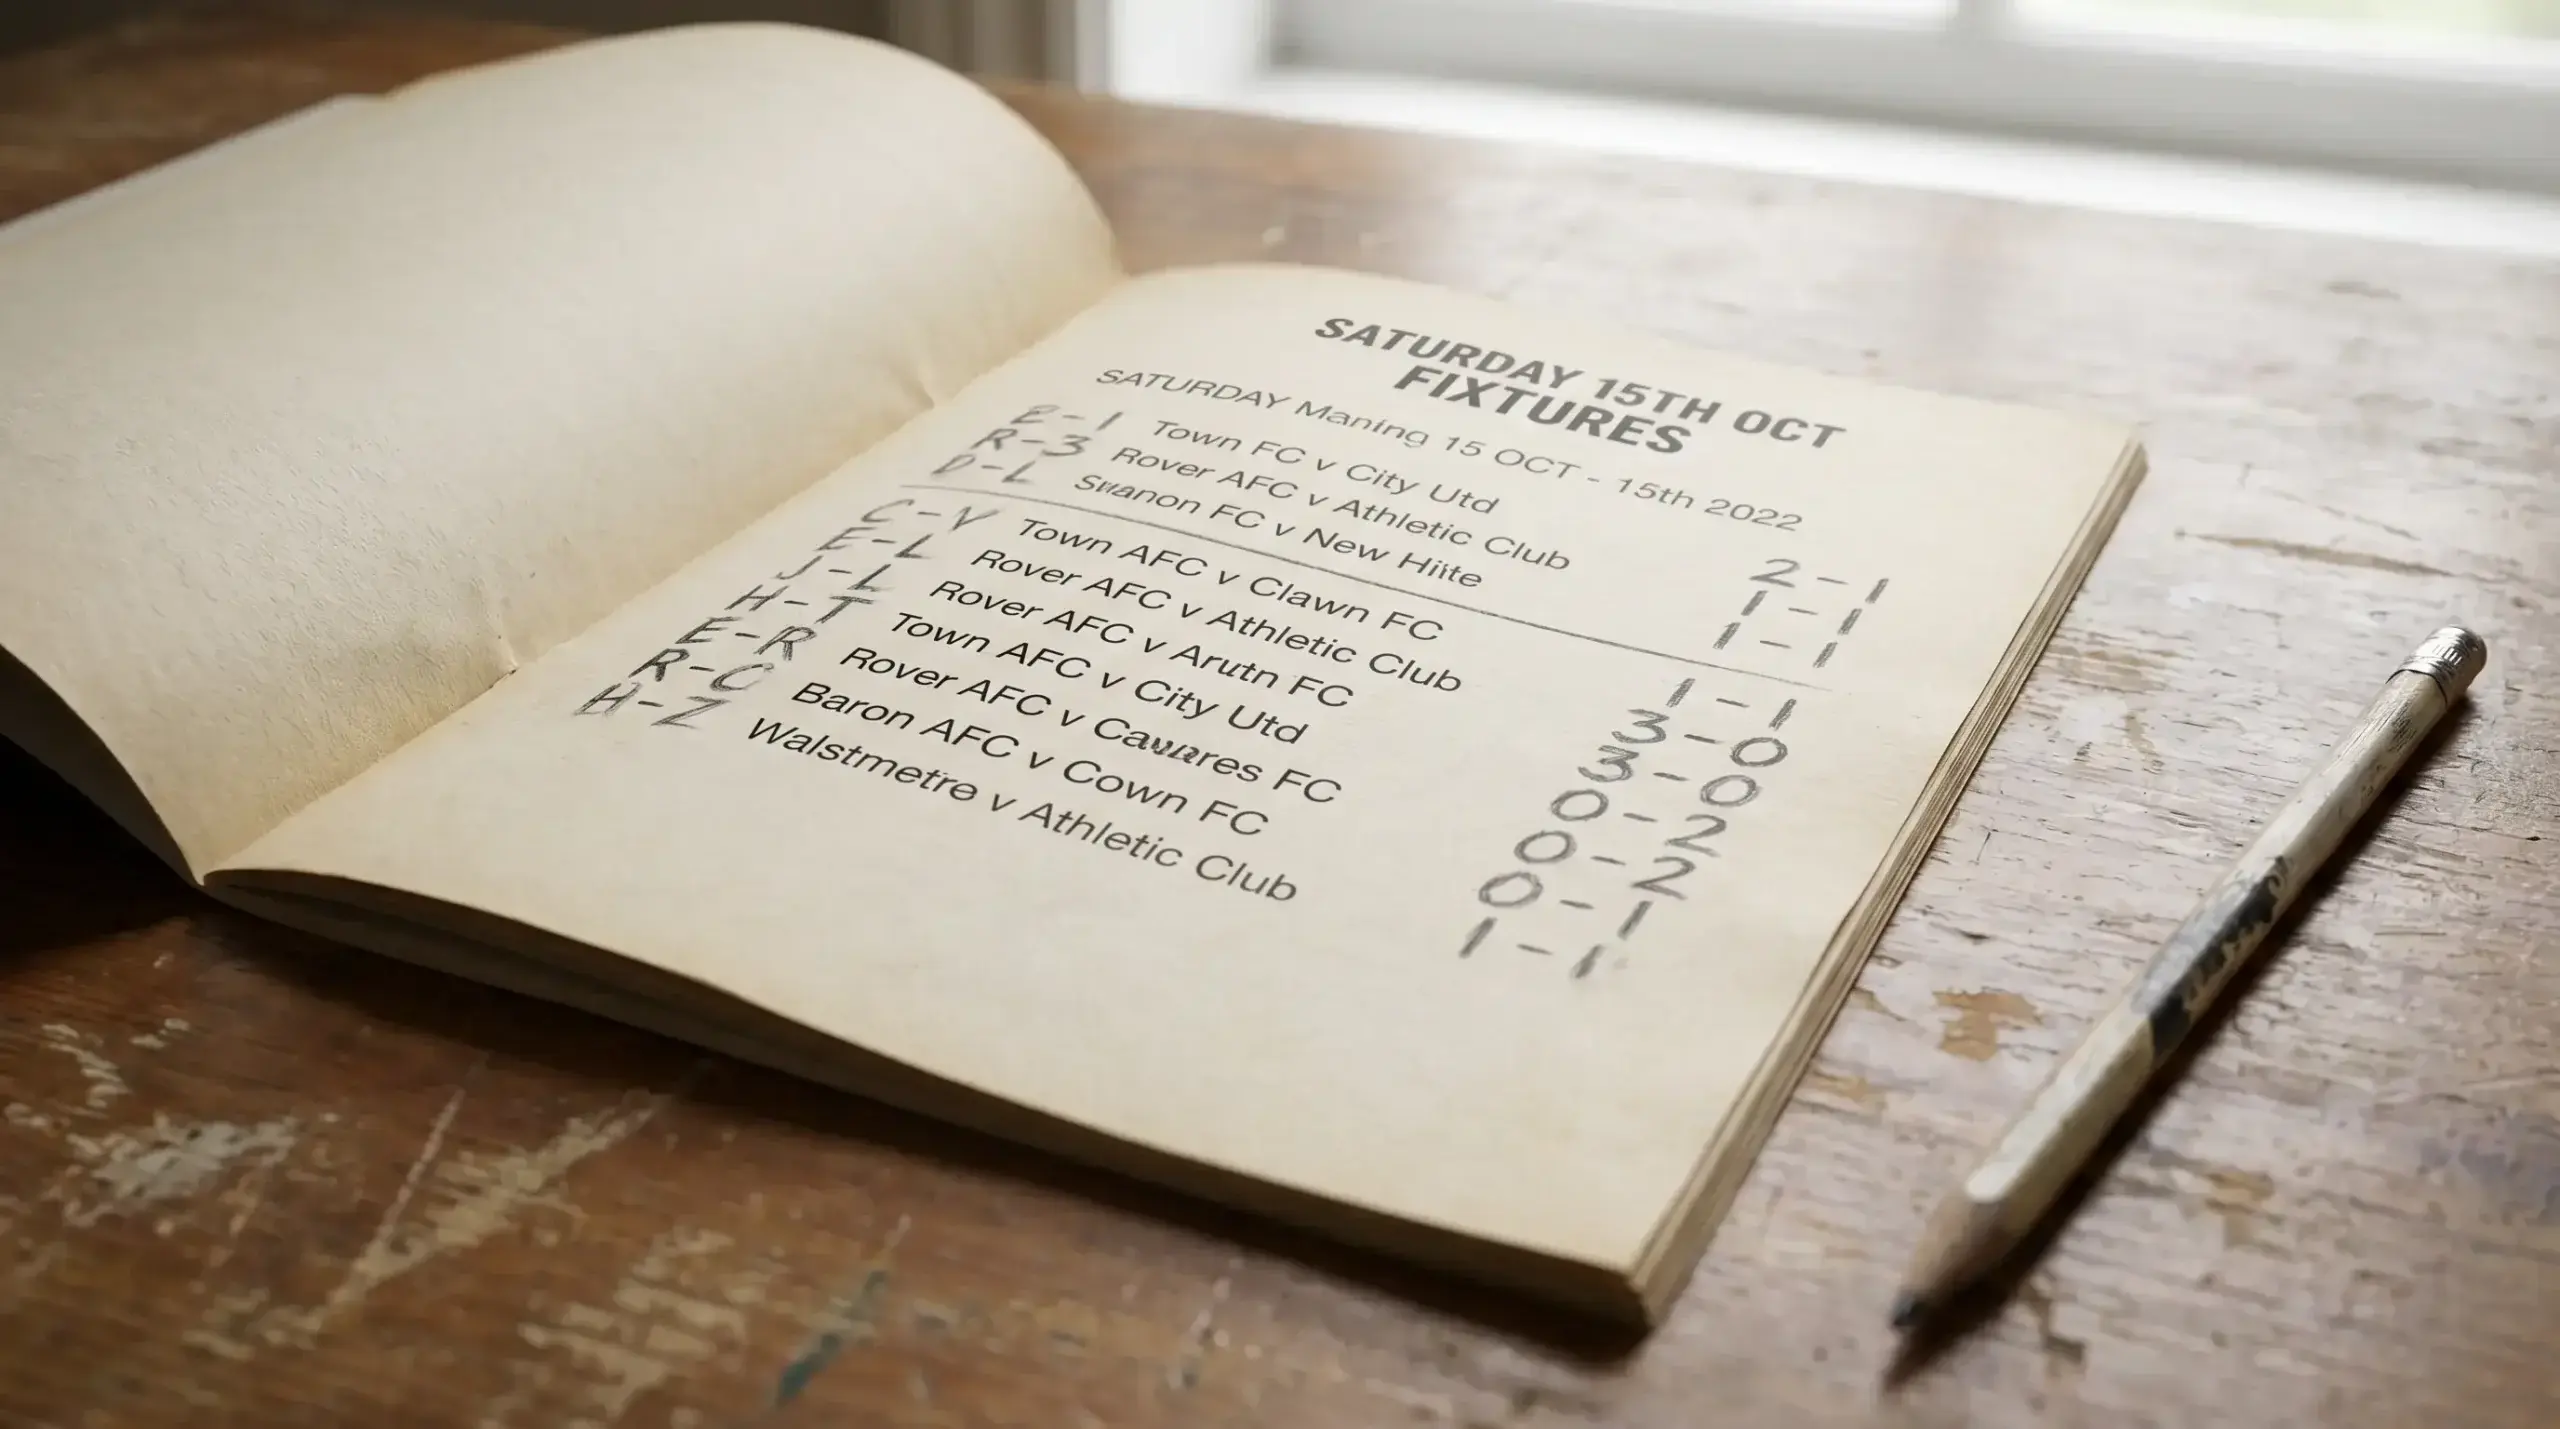 SATURDAY 15TH OCT
FIXTURES
SATURDAY Maning 15 OCT - 15th 2022
E-1 Town FC v City Utd 2-1
R-3 Rover AFC v Athletic Club 1-1
D-L FC v New 1-1
C-Y Town AFC v Clawn FC 1-1
E-L Rover AFC v Athletic Club 3-0
J-L Rover AFC v Arutn FC 3-0
H-T Town AFC v City Utd 0-2
E-R Rover AFC v FC 0-2
R-C Baron AFC v Cown FC 0-1
H-Z Walstmetre v Athletic Club 1-1